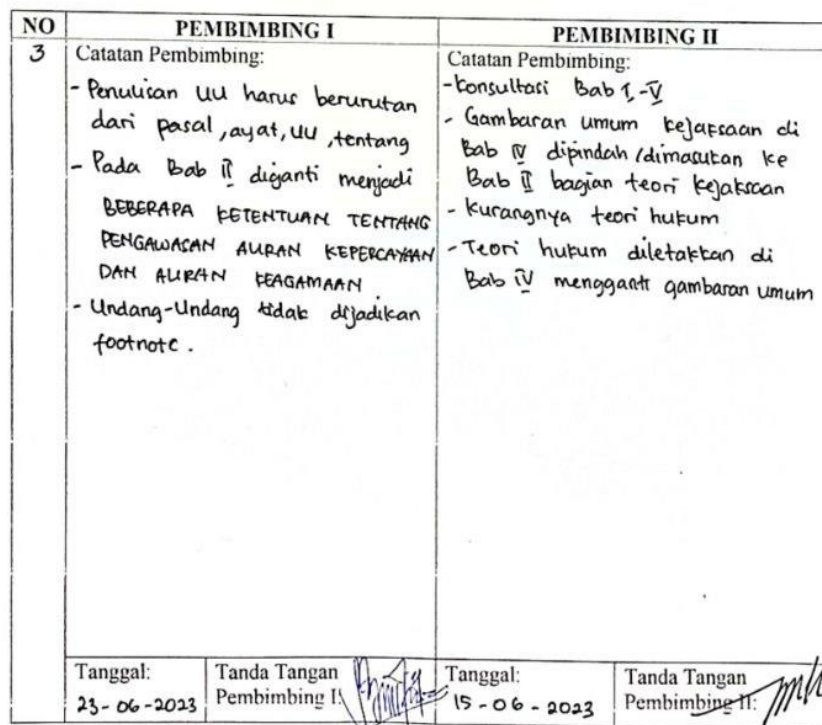 NO PEMBIMBING I PEMBIMBING II
3
Catatan Pembimbing:
- Penulisan UU harus berurutan
dari pasal, ayat, UU, tentang
- Pada Bab II diganti menjadi
BEBERAPA KETENTUAN TENTANG
PENGAWASAN ALIRAN KEPERCAYAAN
DAN ALIRAN KEAGAMAAN
- Undang-Undang tidak dijadikan
footnote.
Catatan Pembimbing:
- Konsultasi Bab I - V
- Gambaran umum kejaksaan di
Bab IV dipindah/dimasukan ke
Bab II bagian teori kejaksaan
- Kurangnya teori hukum
- Teori hukum diletakkan di
Bab IV mengganti gambaran umum
Tanggal:
23-06-2023
Tanda Tangan
Pembimbing I:
Tanggal:
15-06-2023
Tanda Tangan
Pembimbing II: